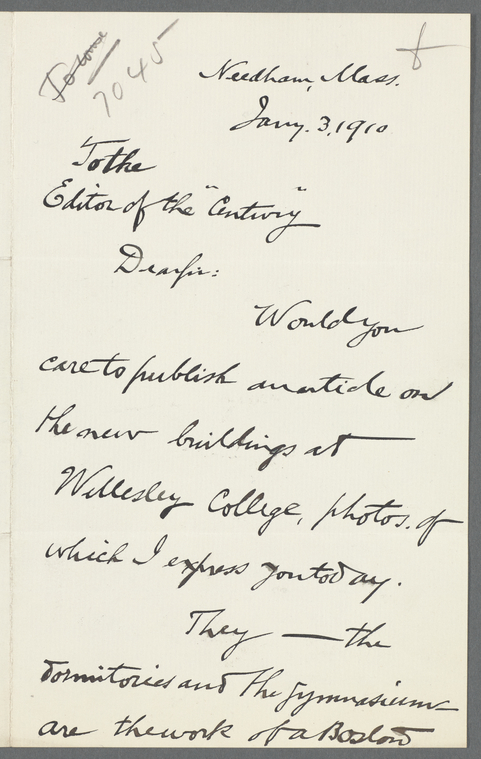 7045
Needham, Mass.
Jany. 3, 1910
To the
Editor of the "Century"
Dear Sir:
Would you
care to publish an article on
the new buildings at
Wellesley College, photos. of
which I express you today.
They — the
dormitories and the gymnasium —
are the work of a Boston